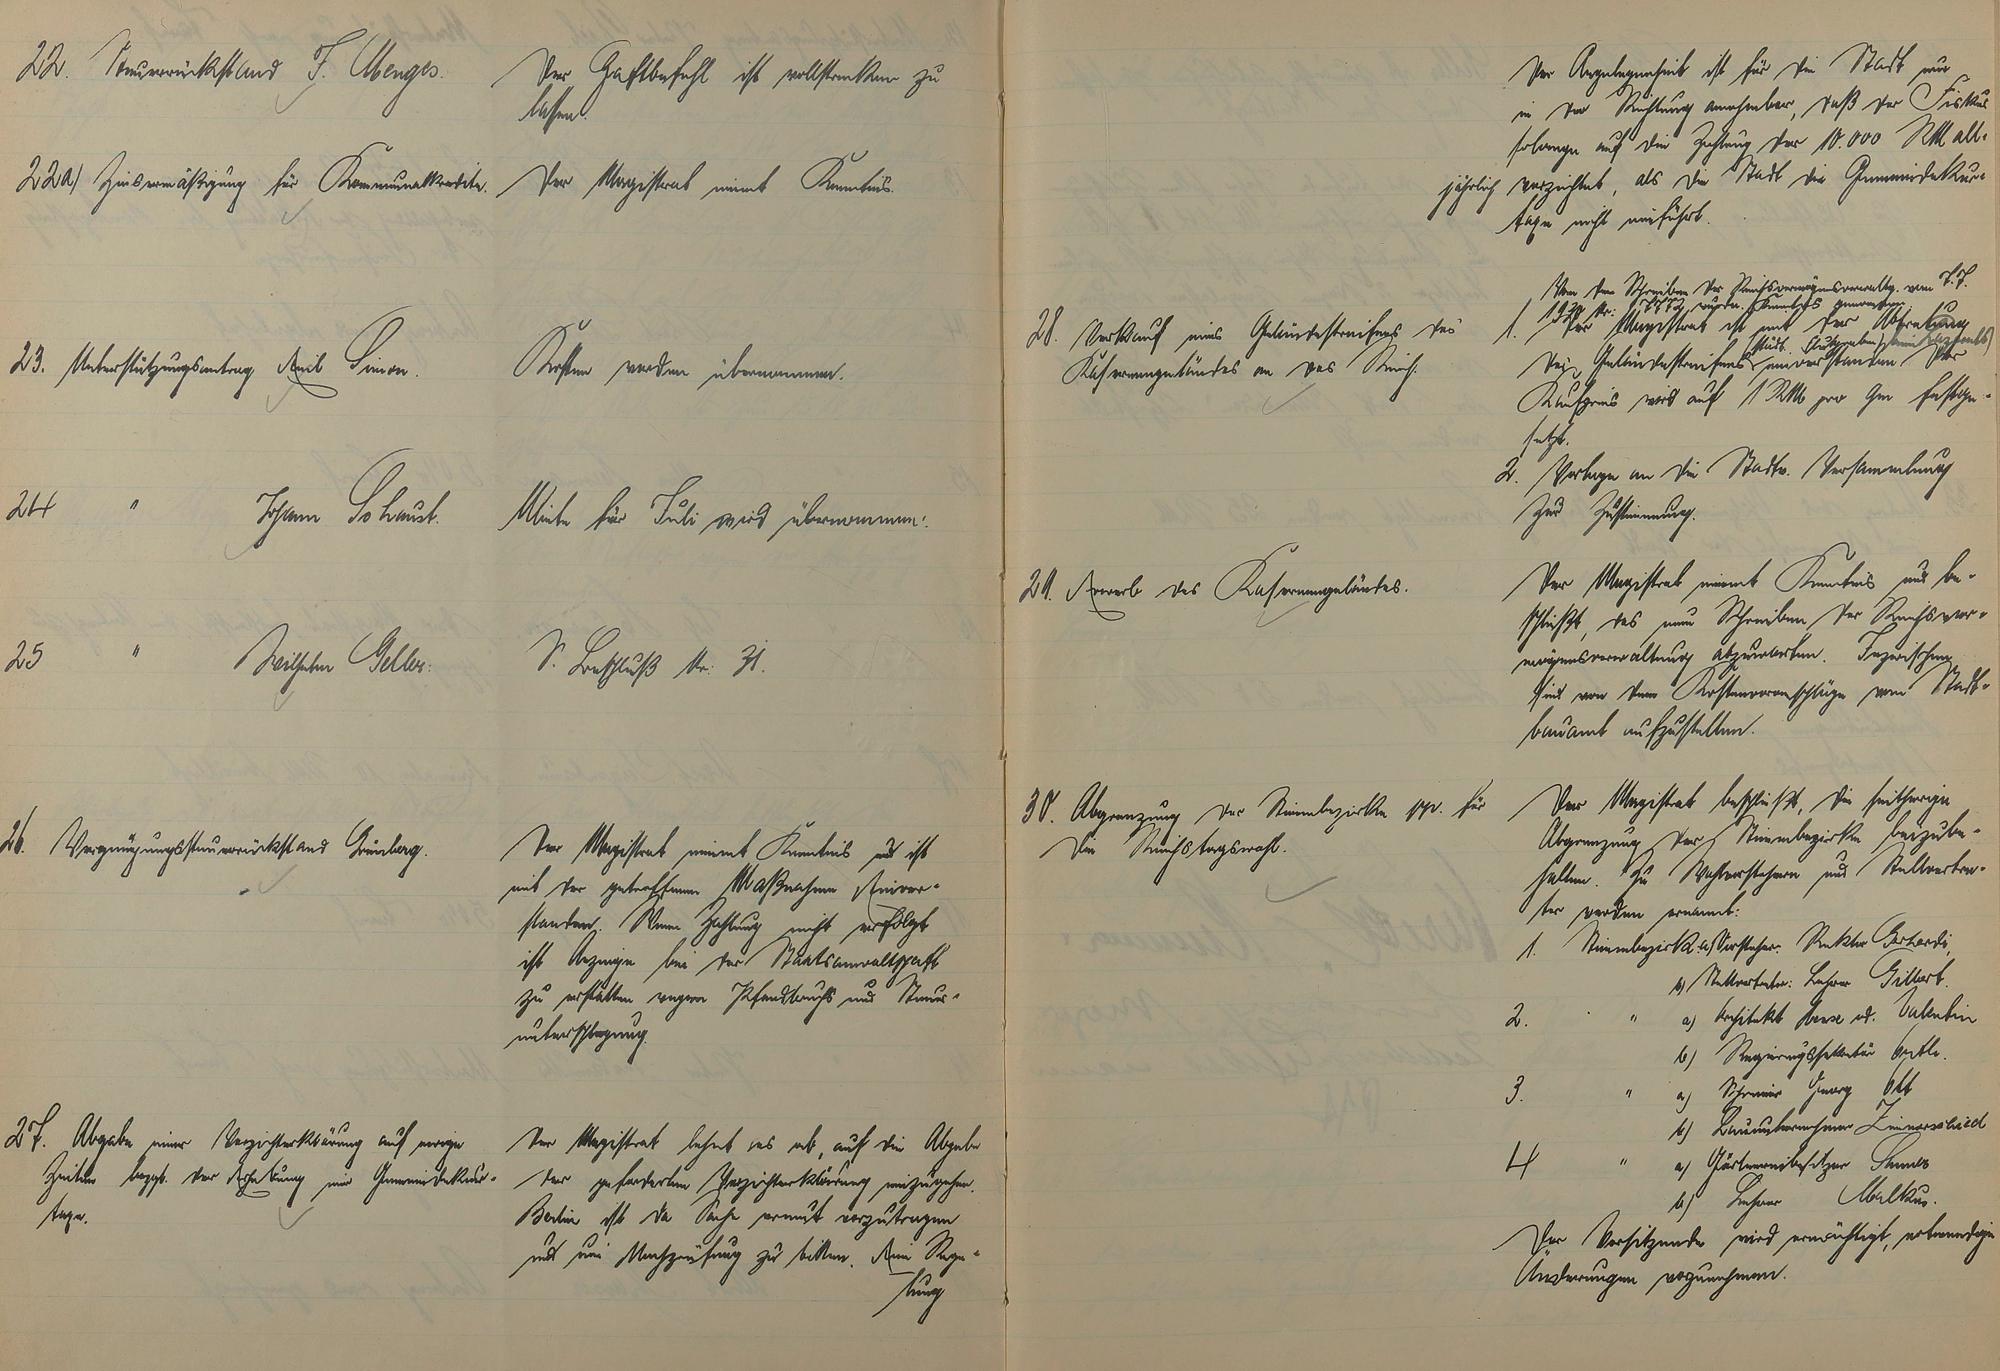 22. Steuerrückstand F. Menges.
Der Haftbefehl ist vollstrecken zu
lassen.
22a) Zinsermäßigung für Kommunalkredite.
Der Magistrat nimmt Kenntnis.
23. Unterstützungsantrag Emil Simon.
Kosten werden übernommen.
24 " Johann Schaust.
Miete für Juli wird übernommen.
25 " Wilhelm Geller.
S. Beschluß Nr. 31.
26. Vergnügungssteuerrückstand Grünberg.
Der Magistrat nimmt Kenntnis und ist
mit der getroffenen Maßnahme einver-
standen. Wenn Zahlung nicht erfolgt
ist Anzeige bei der Staatsanwaltschaft
zu erstatten wegen Pfandbruchs und Steuer-
unterschlagung.
27. Abgabe einer Verzichterklärung auf ewige
Zeiten bezgl. der Erhebung einer Gemeindekur-
taxe.
Der Magistrat lehnt es ab, auf die Abgabe
der geforderten Verzichterklärung einzugehen.
Berlin ist die Sache erneut vorzutragen
und um Nachprüfung zu bitten. Eine Rege-
lung
Der Angelegenheit ist für die Stadt nur
in der Richtung annehmbar, daß der Fiskus
solange auf die Zahlung der 10.000 RM all-
jährlich verzichtet, als die Stadt die Gemeindekur-
taxe nicht einführt.
28. Verkauf eines Geländestreifens des
Kasernengeländes an das Reich.
Von dem Schreiben der Reichsvermögensverwaltg. vom
1930 Nr. wurde Kenntnis genommen.
1. Der Magistrat ist mit der Abtretung
des Geländestreifens einverstanden. Der
Kaufpreis wird auf 1 RM pro qm festge-
setzt.
2. Vorlage an die Stadtv. Versammlung
zur Zustimmung.
29. Erwerb des Kasernengeländes.
Der Magistrat nimmt Kenntnis und be-
schließt, das neue Schreiben der Reichsver-
mögensverwaltung abzuwarten. Inzwischen
sind von dem Kostenvoranschläge vom Stadt-
bauamt aufzustellen.
30. Abgrenzung der Stimmbezirke pp. für
die Reichstagswahl.
Der Magistrat beschließt, die seitherige
Abgrenzung der Stimmbezirke beizube-
halten. Zu Wahlvorstehern und Stellvertre-
ter werden ernannt:
1. Stimmbezirk a) Vorsteher: Rektor Gerhardi,
b) Stellvertreter: Lehrer Gilbert.
2. " a) Architekt Valentin
b) Regierungssekretär
3. " a) Schreiner Georg Ott
b) Bauunternehmer Zimmerschied
4 " a) Gärtnereibesitzer
b) Lehrer Malkus.
Der Vorsitzende wird ermächtigt, notwendige
Änderungen vorzunehmen.